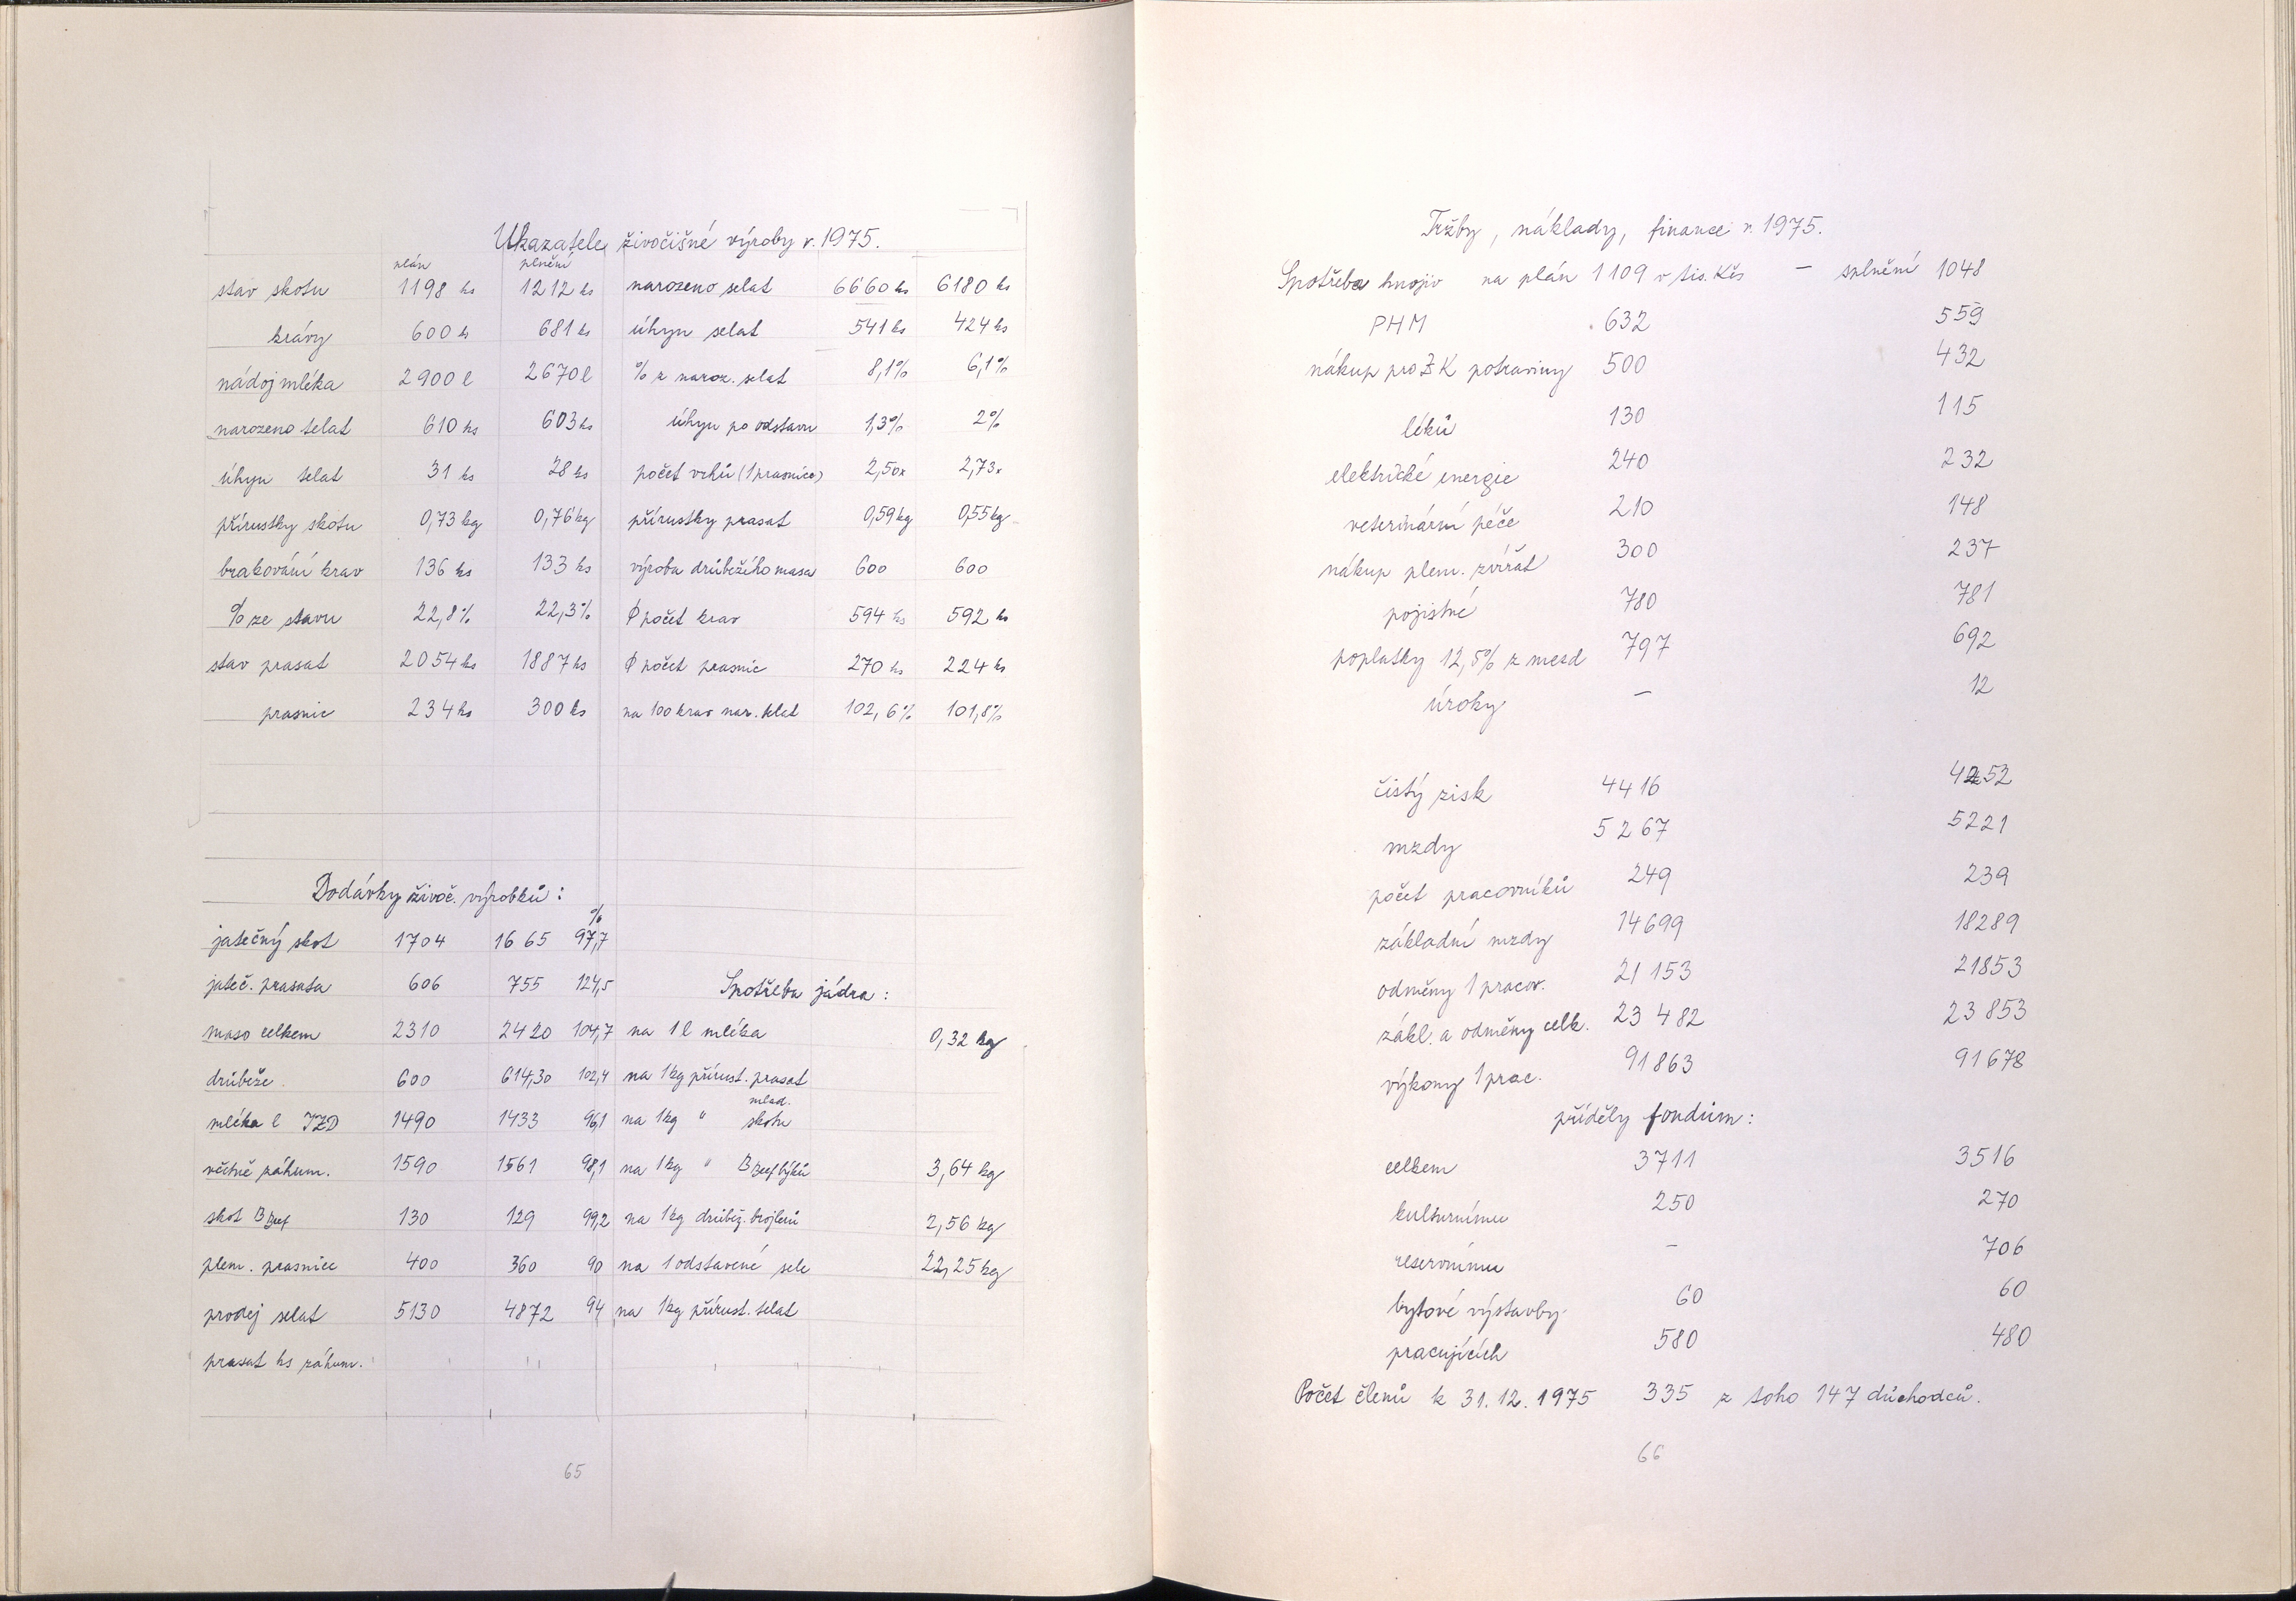 Ukazatele živočišné výroby r. 1975.
plán plnění
stav skotu 1198 ks 1212 ks narozeno selat 6660 ks 6180 ks
krávy 600 ks 681 ks úhyn selat 541 ks 424 ks
nádoj mléka 2900 l 2670 l % z naroz. selat 8,1% 6,1%
narozeno telat 610 ks 603 ks úhyn po odstavu 1,3% 2%
úhyn telat 31 ks 28 ks počet vrhů (1 prasnice) 2,50x 2,73x
přírustky skotu 0,73 kg 0,76 kg přírustky prasat 0,59 kg 0,55 kg
brakování krav 136 ks 133 ks výroba drůbežího masa 600 600
% ze stavu 22,8% 22,3% ϕ počet krav 594 ks 592 ks
stav prasat 2054 ks 1887 ks ϕ počet prasnic 270 ks 224 ks
prasnic 234 ks 300 ks na 100 krav nar. telat 102,6% 101,8%
Dodávky živoč. výrobků:
%
jatečný skot 1704 1665 97,7
jateč. prasata 606 755 124,5 Spotřeba jádra:
maso celkem 2310 2420 104,7 na 1 l mléka 0,32 kg
drůbeže 600 614,30 102,4 na 1kg přírust. prasat
mlad.
mléka l JZD 1490 1433 96,1 na 1kg " skotu
včetně záhum. 1590 1561 98,1 na 1kg " B Beef býků 3,64 kg
skot B Beef 130 129 99,2 na 1kg drůbež. brojlerů 2,56 kg
plem. prasnice 400 360 90 na 1 odstavené sele 22,25 kg
prodej selat 5130 4872 94 na 1kg přírust. telat
prasat ks záhum.
65
Tržby, náklady, finance r. 1975.
Spotřeba hnojiv na plán 1109 v tis. Kčs — splnění 1048
PHM 632 559
nákup pro ZK potraviny 500 432
léků 130 115
elektrické energie 240 232
veterinární péče 210 148
nákup plem. zvířat 300 237
pojistné 780 781
poplatky 12,5% z mezd 797 692
úroky — 12
čistý zisk 4416 4252
mzdy 5267 5221
počet pracovníků 249 239
základní mzdy 14699 18289
odměny 1 pracov. 21153 21853
zákl. a odměny celk. 23 482 23 853
výkony 1 prac. 91863 91678
příděly fondům:
celkem 3711 3516
kulturnímu 250 270
reservnímu — 706
bytové výstavby 60 60
pracujících 580 480
Počet členů k 31. 12. 1975 335 z toho 147 důchodců.
66